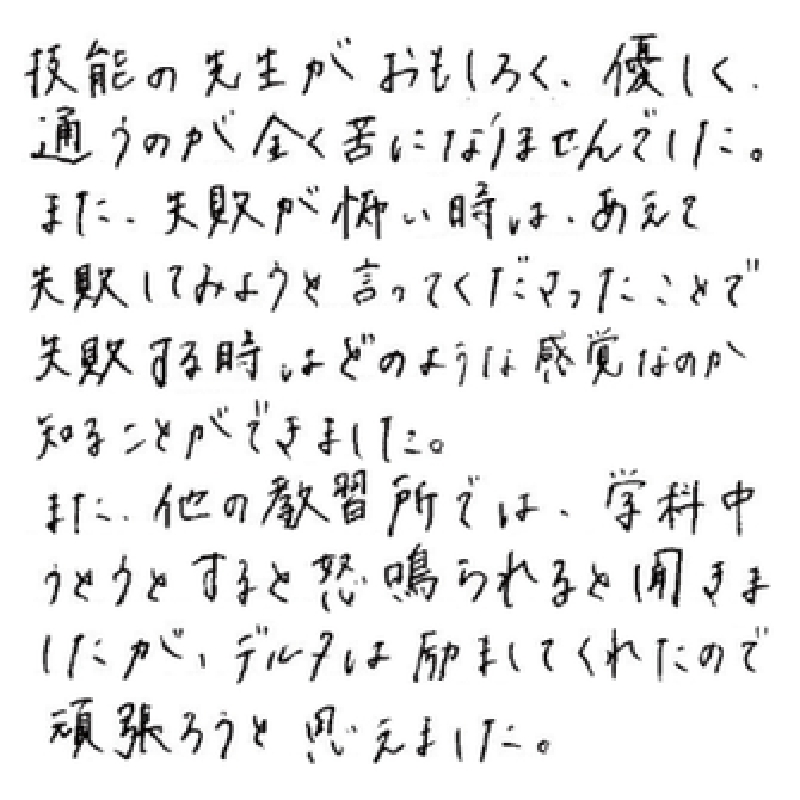 技能の先生がおもしろく、優しく、
通うのが全く苦になりませんでした。
また、失敗が怖い時は、あえて
失敗してみようと言ってくださったことで
失敗する時はどのような感覚なのか
知ることができました。
また、他の教習所では、学科中
うとうとすると怒鳴られると聞きま
したが、デルタは励ましてくれたので
頑張ろうと思えました。